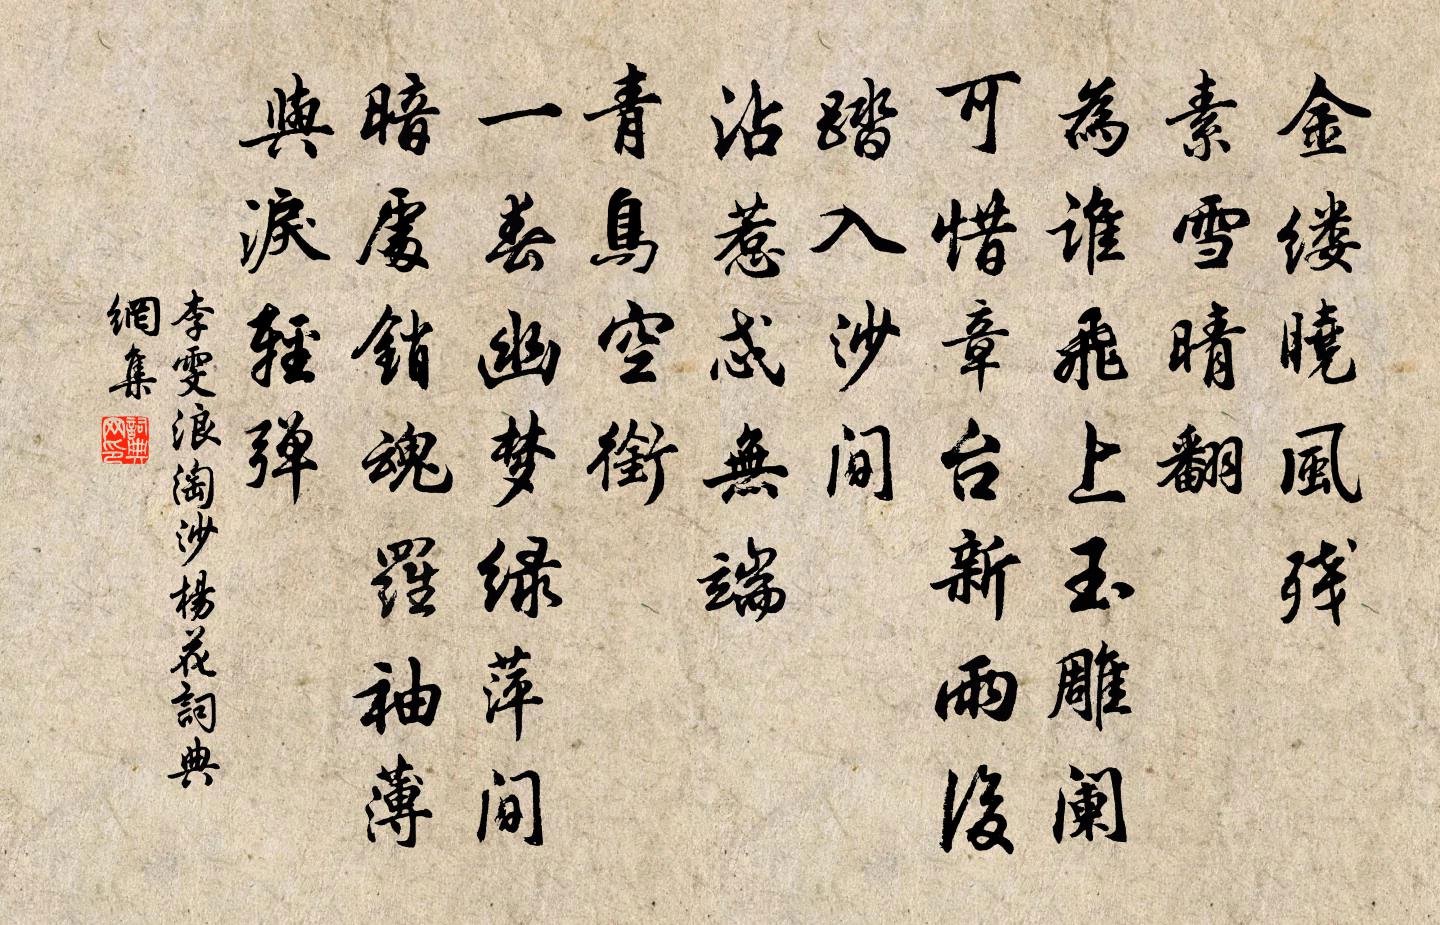 金缕曉風残
素雪晴翻
為誰飛上玉雕阑
可惜章台新雨後
踏入沙间
沾惹忒無端
青鳥空銜
一春幽梦绿萍间
暗處銷魂羅袖薄
與淚輕弹
李雯浪淘沙楊花詞典
網集
詞典
网印